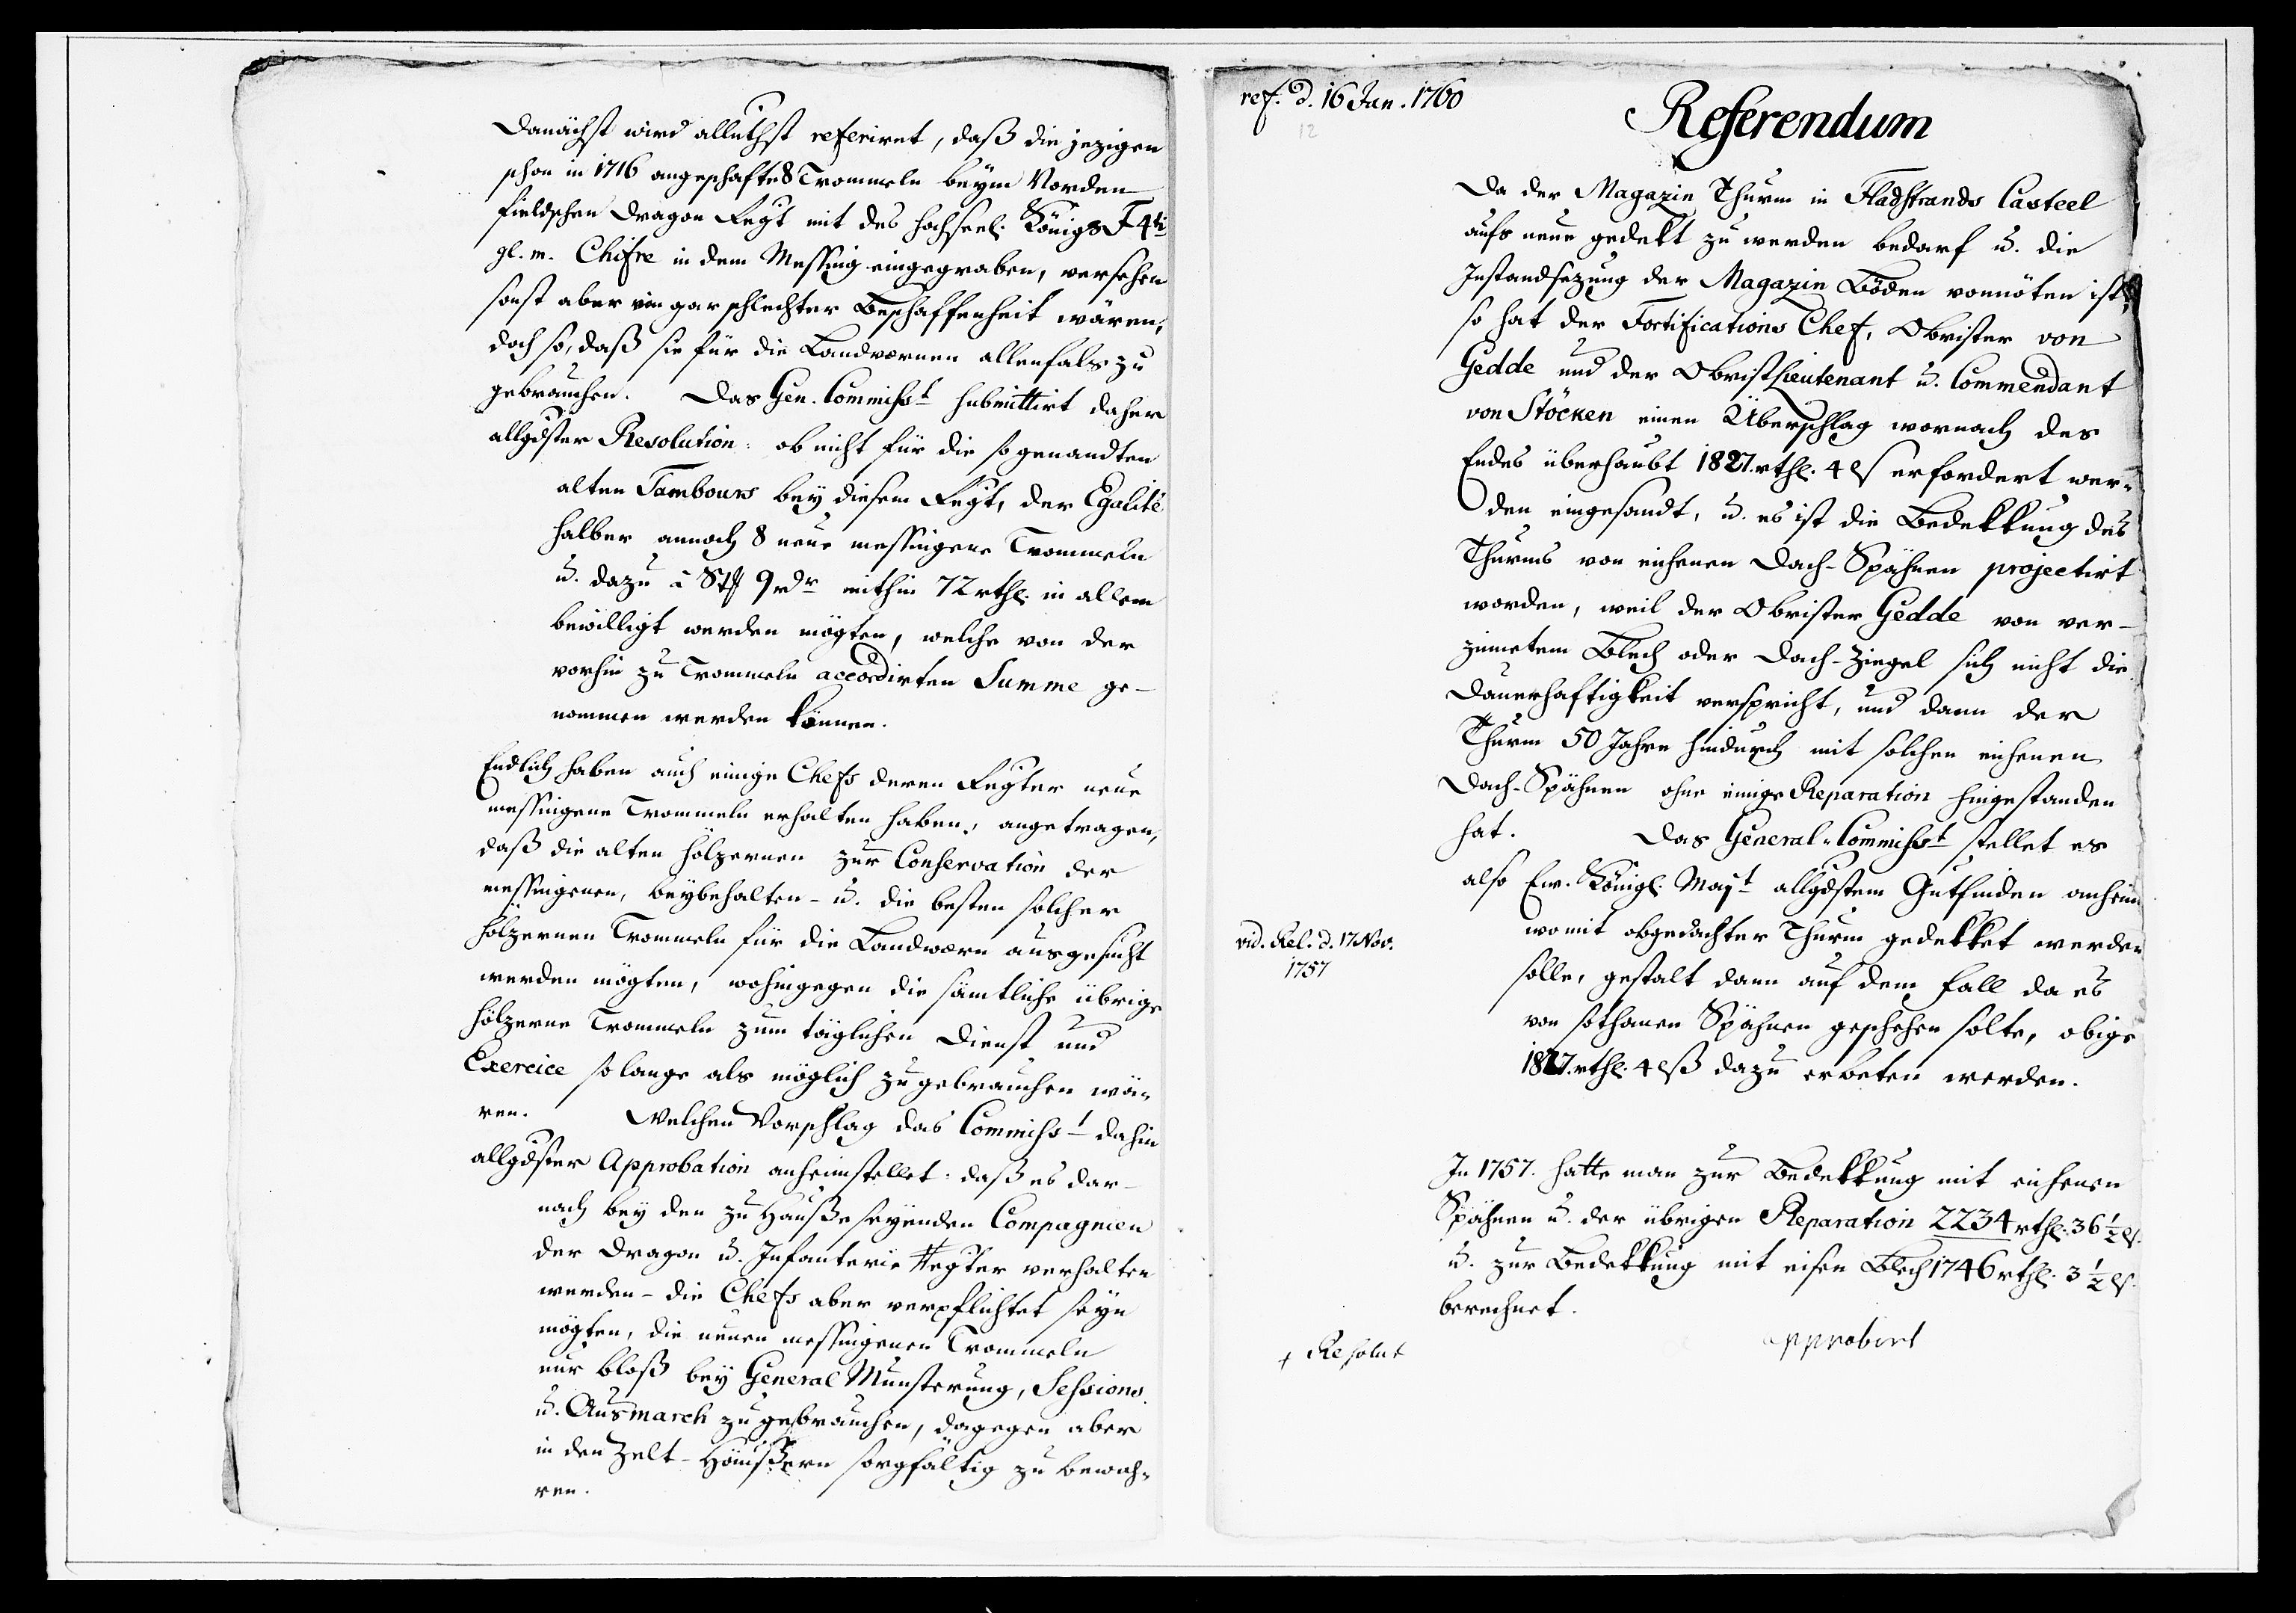 Danächst wird alluthst referiret, daß die jezigen
schon in 1716 angeschafte 8 Trommeln beym Norden-
fieldschen Dragon Regt mit des hochseel. Königs F 4ti
gl. m. Chifre in dem Messing eingegraben, versehen
sonst aber von gar schlechter Beschaffenheit wären,
doch so, daß sie für die Landværnen allenfals zu
gebrauchen. Das Gen. Commisst submittirt daher
allgdster Resolution: ob nicht für die so genandten
alten Tambours bey diesem Regt, der Egalité
halber annoch 8 neue messingene Trommeln
u. dazu à Stk 9 rdr mithin 72 rthl. in allem
bewilligt werden mögten, welche von der
vorhin zu Trommeln accordirten Summe ge-
nommen werden können.
Endlich haben auch einige Chefs deren Regter neue
messingene Trommeln erhalten haben, angetragen,
daß die alten hölzernen zur Conservation der
messingenen, beybehalten- u. die besten solcher
hölzernen Trommeln für die Landværn ausgesucht
werden mögten, wohingegen die sämtliche übrige
hölzerne Trommeln zum täglichen Dienst und
Exercice so lange als möglich zu gebrauchen wä-
ren. Welchen Vorschlag das Commisst dahin
allgdster Approbation anheimstellet: daß es dar-
nach bey den zu Hauße seyenden Compagnien
der Dragon u. Infanterie Regter verhalten
werden- die Chefs aber verpflichtet seyn
mögten, die neuen messingenen Trommeln
nur bloß bey General Munsterung, Sessions
u. Ausmarch zu gebrauchen, dagegen aber
in den Zelt-Häußern sorgfältig zu bewah-
ren.
ref. d. 16 Jan. 1760
12
Referendum
Da der Magazin Thurm in Fladstrands Casteel
aufs neue gedekt zu werden bedarf u. die
Instandsezung der Magazin Böden vonnöten ist,
so hat der Fortifications Chef, Obrister von
Gedde und der Obristlieutenant u. Commendant
von Stöcken einen Überschlag wornach des
Endes überhaubt 1827 rthl. 4 ls erfordert wer-
den eingesandt, u. es ist die Bedekkung des
Thurms von eichenen Dach-Spähnen projectirt
worden, weil der Obrister Gedde von ver-
zinnetem Blech oder Dach-Ziegel sich nicht die
Dauerhaftigkeit verspricht, und dann der
Thurm 50 Jahre hindurch mit solchen eichenen
Dach-Spähnen ohne einige Reparation hingestanden
hat. Das General-Commisst stellet es
also Ew. Königl. Majt allgdstem Gutfinden anheim
vid. Rel. d. 17 Nov.
1757
womit obgedachter Thurm gedekket werden
solle, gestalt dann auf dem Fall da es
von sothanen Spähnen geschehen solte, obige
1827 rthl. 4 lß dazu erbeten werden.
In 1757. hatte man zur Bedekkung mit eichenen
Spähnen u. der übrigen Reparation 2234 rthl. 36 1/2 ls.
u. zur Bedekkung mit eisen Blech 1746 rthl. 3 1/2 ls.
berechnet.
approbirt
+ Resolut